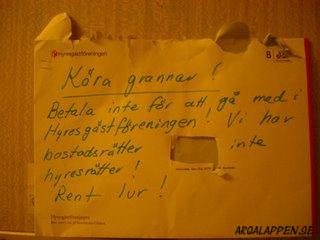 Hyresgästföreningen
B
Kära grannar!
Betala inte för att gå med i
Hyresgästföreningen! Vi har
bostadsrätter inte
hyresrätter!
Rent lur!
Hyresgästföreningen
ARGALAPPEN.SE